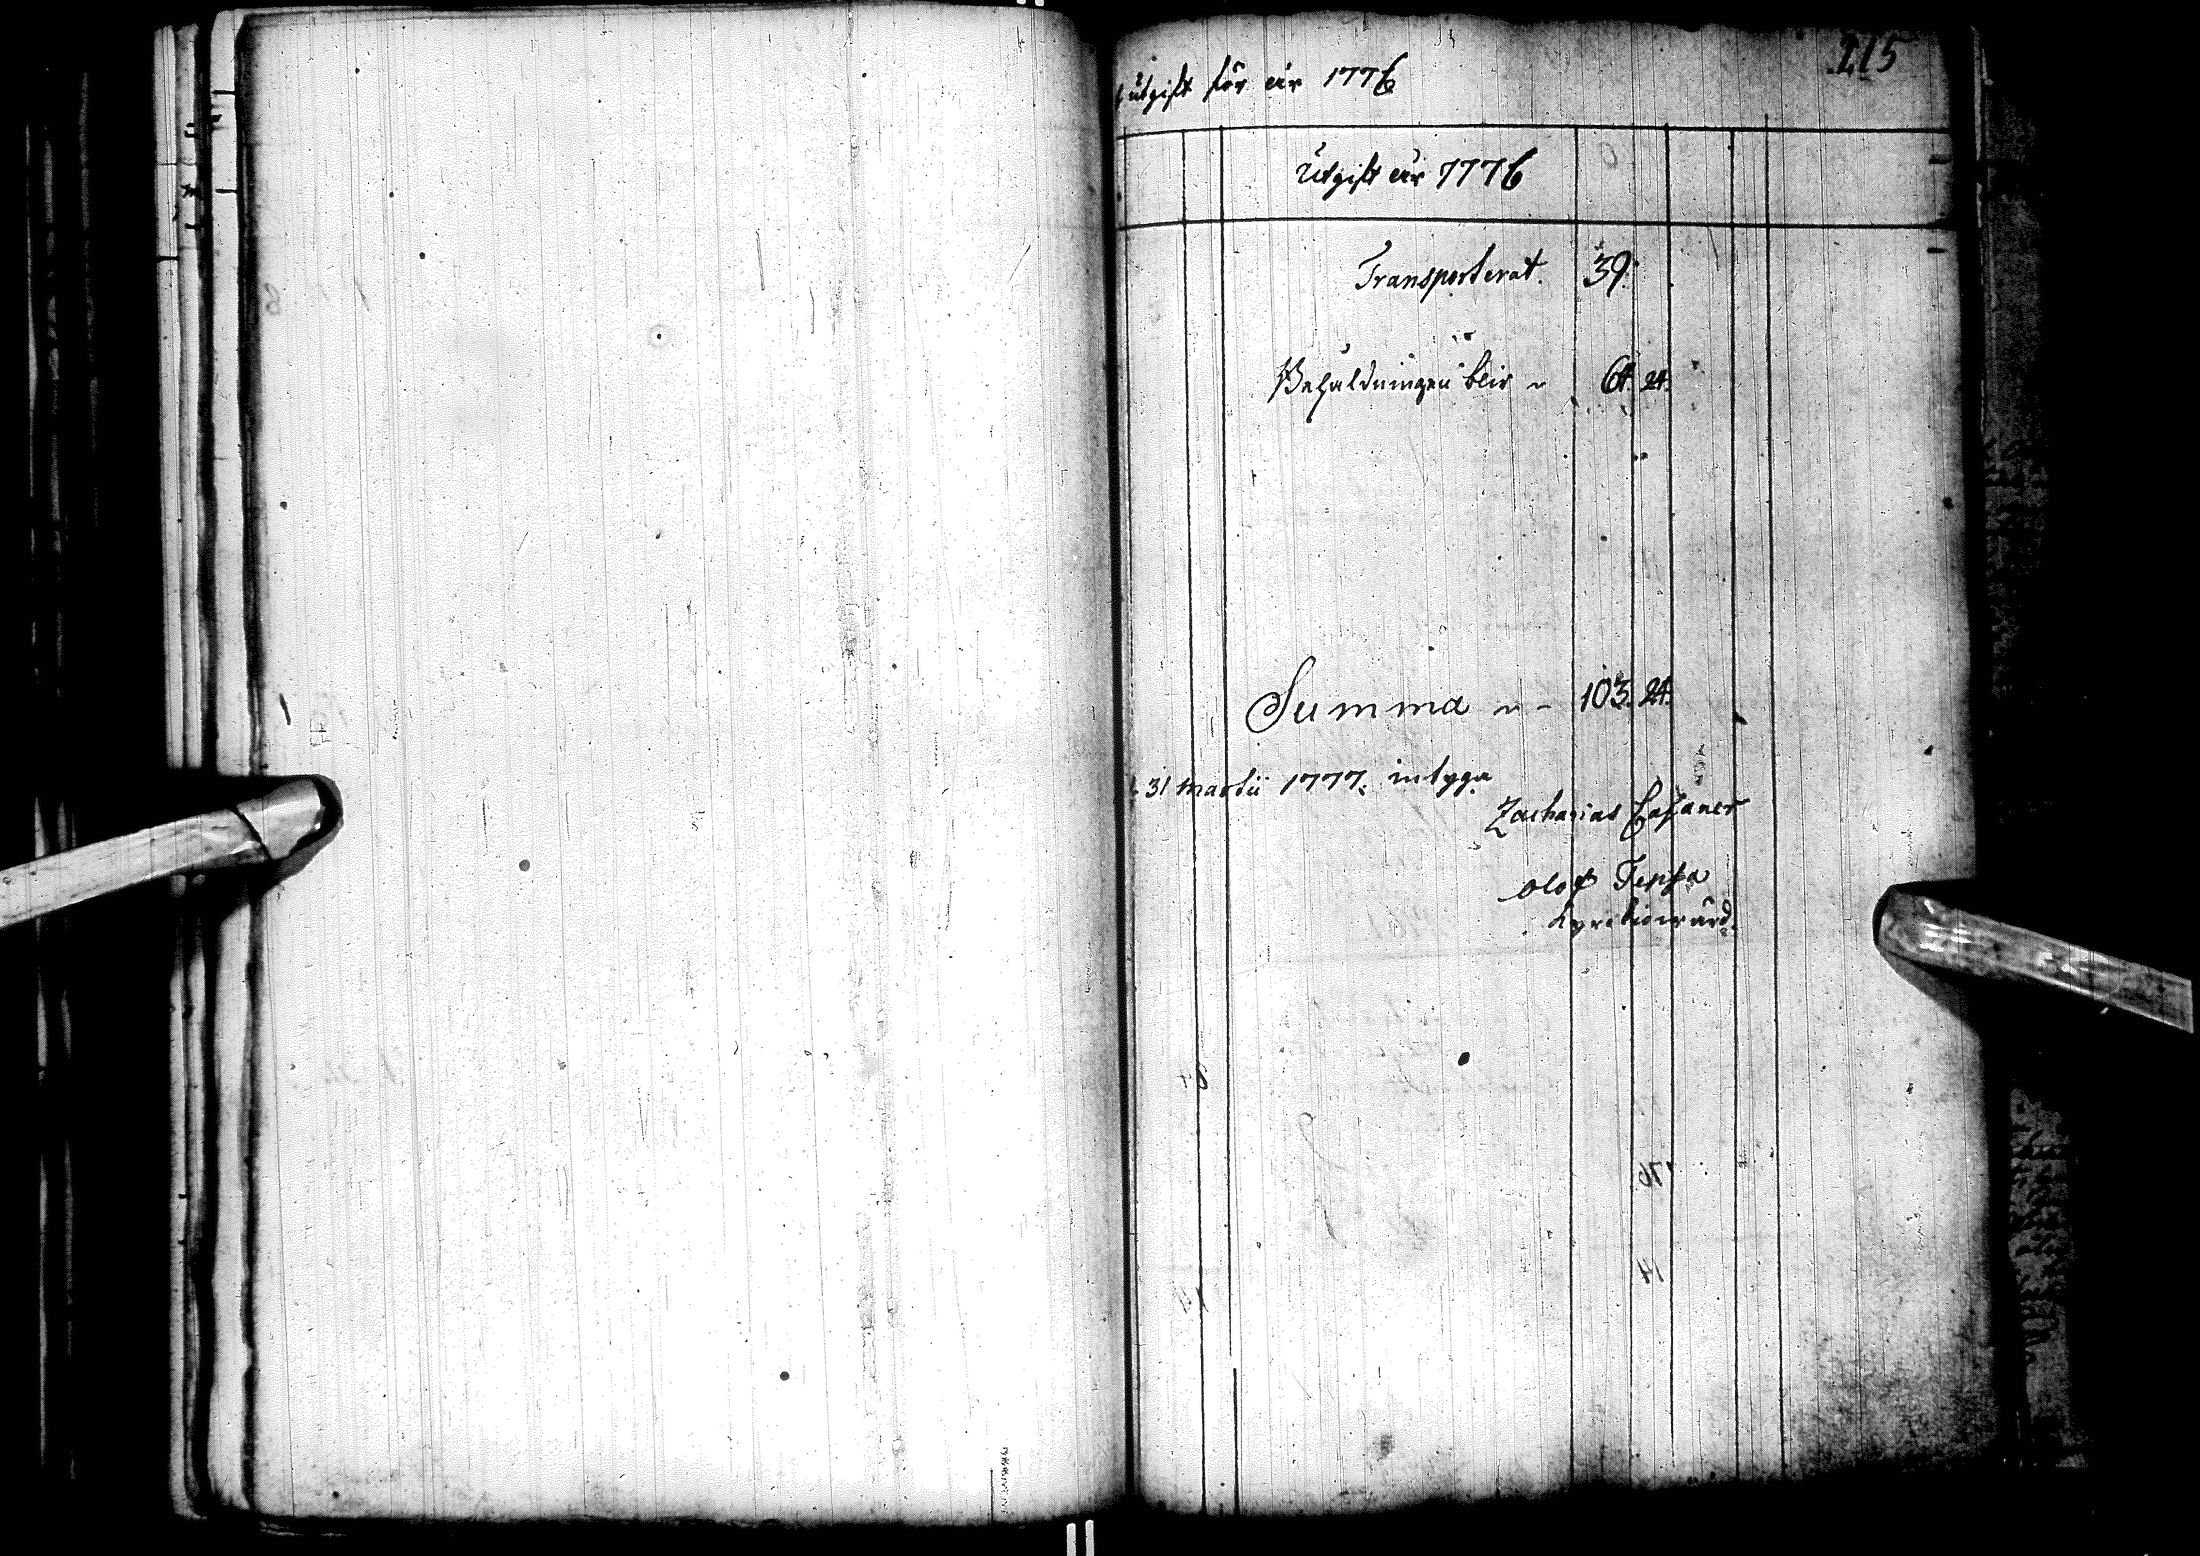 215
utgift för år 1776
Utgift år 1776
Transporterat. 39.
Behåldningen blir 64. 24.
Summa 103. 24.
31 Martii 1777. intyga
Zacharias
Olof
Kyrckiowärd.